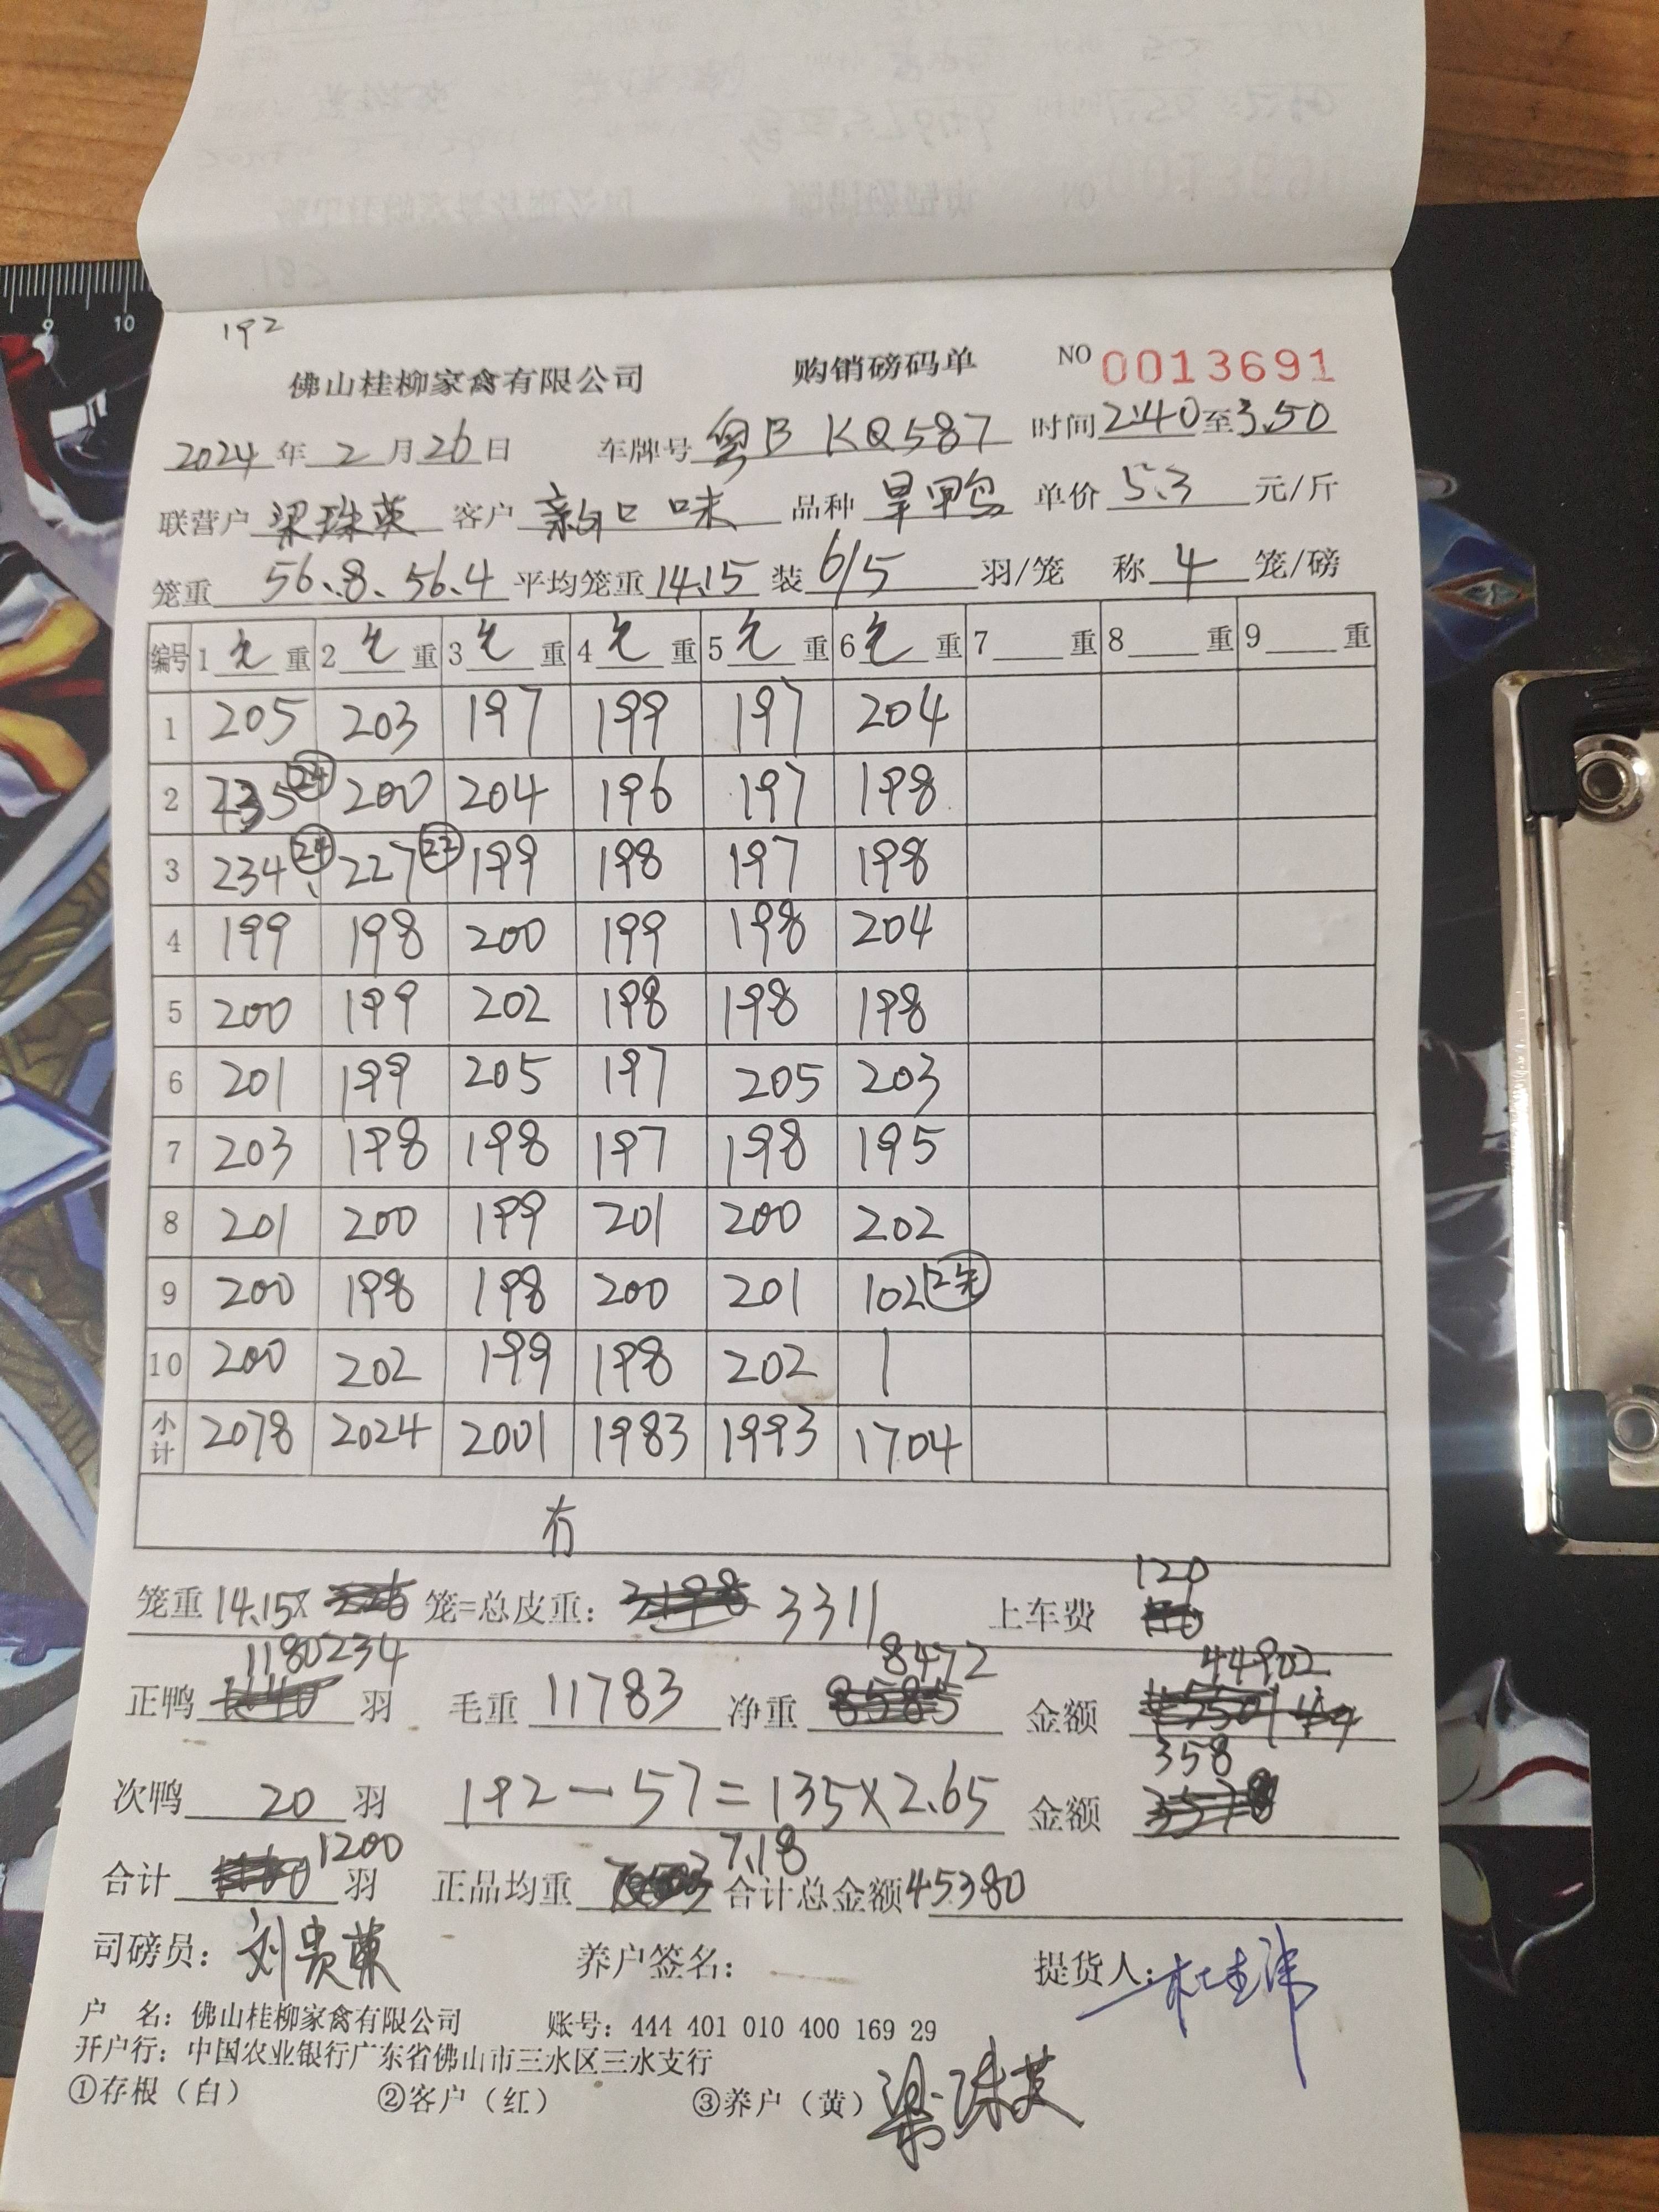 9 10
192
佛山桂柳家禽有限公司 购销磅码单 NO 0013691
2024 年 2 月 26 日 车牌号 粤B KQ587 时间 2:40 至 3.50
联营户 梁珠英 客户 新口味 品种 旱鸭 单价 5.3 元/斤
笼重 56.8、56.4 平均笼重 14.15 装 6/5 羽/笼 称 4 笼/磅
编号 1 毛 重 2 毛 重 3 毛 重 4 毛 重 5 毛 重 6 毛 重 7 重 8 重 9 重
1 205 203 197 199 197 204
2 235 24 200 204 196 197 198
3 234 24 227 22 199 198 197 198
4 199 198 200 199 198 204
5 200 199 202 198 198 198
6 201 199 205 197 205 203
7 203 198 198 197 198 195
8 201 200 199 201 200 202
9 200 198 198 200 201 102
10 200 202 199 198 202
小计 2078 2024 2001 1983 1993 1704
冇
笼重 14.15X 234 笼=总皮重: 3311 上车费 120
正鸭 1180 羽 毛重 11783 净重 8472 金额 44902
次鸭 20 羽 192-57=135×2.65 金额 358
合计 1200 羽 正品均重 7.18 合计总金额 45380
司磅员: 刘贵 养户签名: 提货人:
户 名: 佛山桂柳家禽有限公司 账号: 444 401 010 400 169 29
开户行: 中国农业银行广东省佛山市三水区三水支行
①存根(白) ②客户(红) ③养户(黄) 梁珠英